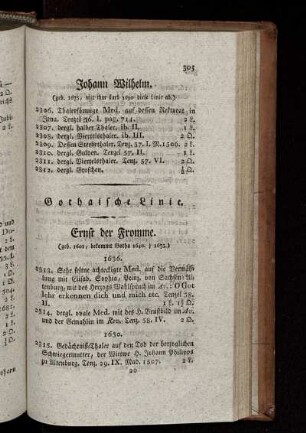 305
Johann Wilhelm.
(geb. 1675. mit ihm starb 1690 diese Linie ab.)
2306. Thalerförmige Med. auf dessen Rectorat in
Jena. Tenzel 56. I. pag. 744. 2 ℓ.
2307. dergl. halber Thaler. ib. II. 1 ℓ.
2308. dergl. Viertelsthaler. ib. III. Ω.
2309. Dessen Sterbethaler. Tenzel 57. I. M. 1506. 2 ℓ.
2310. dergl. Gulden. Tenzel 57. II. 1 ℓ.
2311. dergl. Viertelsthaler. Tenz. 57. VI. Ω.
2312. dergl. Groschen. Ω
Gothaische Linie.
Ernst der Fromme.
(geb. 1601; bekommt Gotha 1640. † 1675.)
1636.
2313. Sehr seltne achteckigte Med. auf die Vermäh-
lung mit Elisab. Sophia, Prinz. von Sachsen-Al-
tenburg, mit des Herzogs Wahlspruch im Av. O Got
hehr erkennen dich und mich etc. Tenzel 38.
II.
2314. dergl. ovale Med. mit des H. Brustbild im Av.
und der Gemahlin im Rev. Tenz. 38. IV. 2 Ω.
1650.
2315. Gedächtniß-Thaler auf den Tod der herzoglichen
Schwiegermutter, der Witwe H. Johann Philipps
zu Altenburg. Tenz. 29. IX. Mad. 1507. 2 ℓ.
20